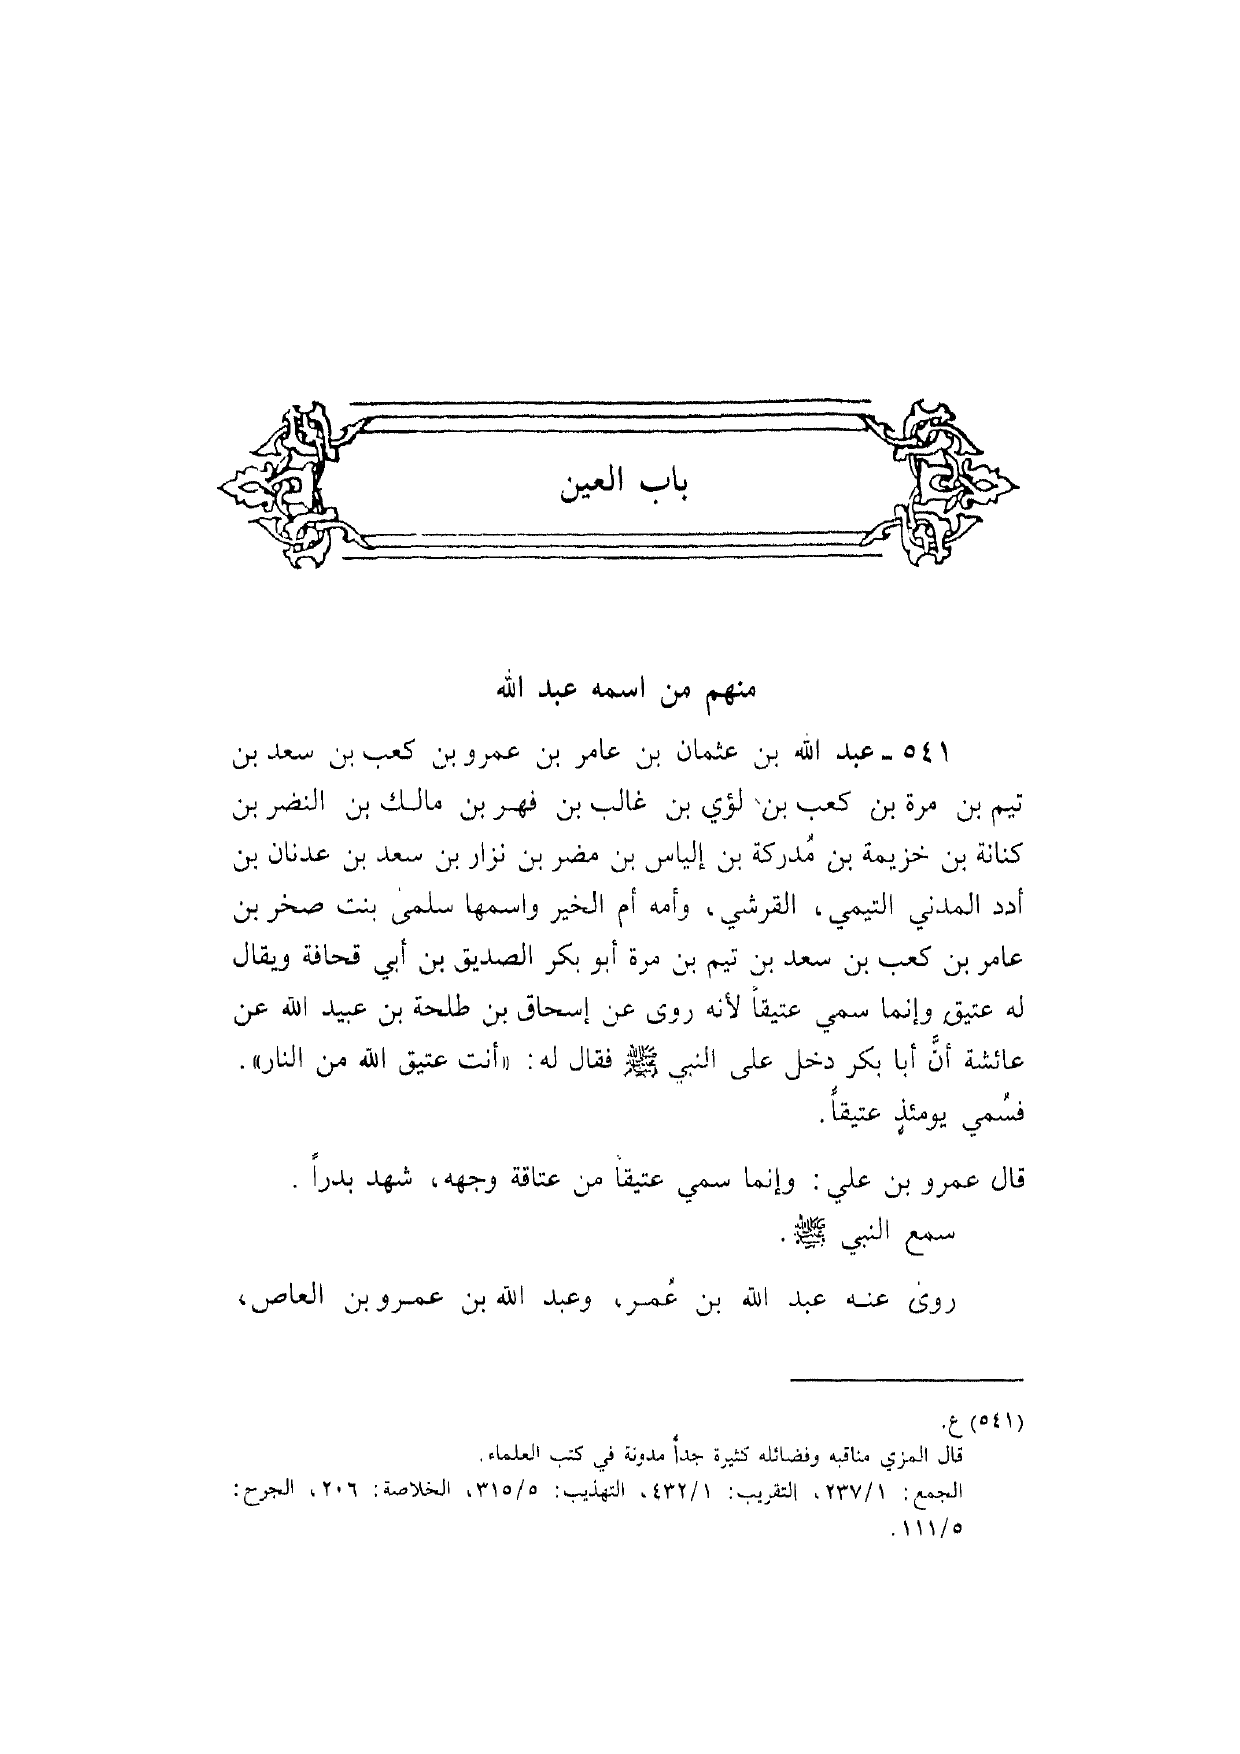 باب العين
منهم من اسمه عبد الله
٥٤١ ـ عبد الله بن عثمان بن عامر بن عمرو بن كعب بن سعد بن
تيم بن مرة بن كعب بن لؤي بن غالب بن فهر بن مالك بن النضر بن
كنانة بن خزيمة بن مُدركة بن إلياس بن مضر بن نزار بن سعد بن عدنان بن
أدد المدني التيمي، القرشي، وأمه أم الخير واسمها سلمى بنت صخر بن
عامر بن كعب بن سعد بن تيم بن مرة أبو بكر الصديق بن أبي قحافة ويقال
له عتيق وإنما سمي عتيقاً لأنه روى عن إسحاق بن طلحة بن عبيد الله عن
عائشة أنَّ أبا بكر دخل على النبي ﷺ فقال له: «أنت عتيق الله من النار».
فسُمي يومئذٍ عتيقاً.
قال عمرو بن علي: وإنما سمي عتيقاً من عتاقة وجهه، شهد بدراً.
سمع النبي ﷺ.
روى عنه عبد الله بن عُمر، وعبد الله بن عمرو بن العاص،
(٥٤١) ع.
قال المزي مناقبه وفضائله كثيرة جداً مدونة في كتب العلماء.
الجمع: ٢٣٧/١، التقريب: ٤٣٢/١، التهذيب: ٣١٥/٥، الخلاصة: ٢٠٦، الجرح:
١١١/٥.